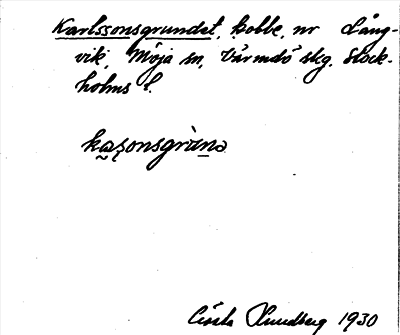 Karlssonsgrundet, kobbe, nr Lång-
vik, Möja sn, Värmdö skg, Stock-
holms l.
kasonsgrùnə
Gösta Lundberg 1930